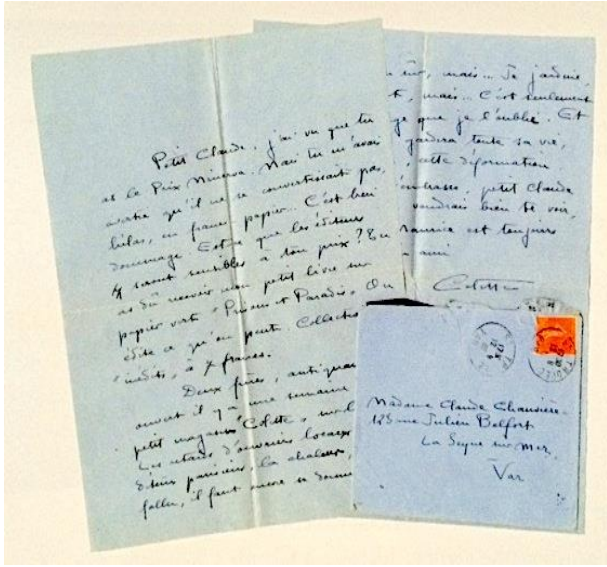 Petit Claude, j'ai vu que tu
as le Prix Minerva. Mais tu m'avais
qu'il ne se convertissait pas,
hélas, en francs-papier... C'est bien
dommage. Est-ce que les éditeurs
seront sensibles à ton prix? Tu
as dû recevoir mon petit livre sur
papier vert "Prisons et Paradis". On
édite ce qu'on peut. Collection
"inédits", à 7 francs.
Deux frères, antiquaires
ouvert il y a une semaine
petit magasin "Colette",
d'ouvriers locaux
parisiens, la chaleur,
falloir, il faut encore se donner
mais... Je jardine
mais... C'est seulement
que je l'oublie. Et
gardera toute sa vie,
cette déformation
petit Claude
voudrais bien te voir,
Maurice est toujours
ami
Colette
Madame Claude Chauvière
123 rue Julien Belfort
La Seyne sur Mer,
Var